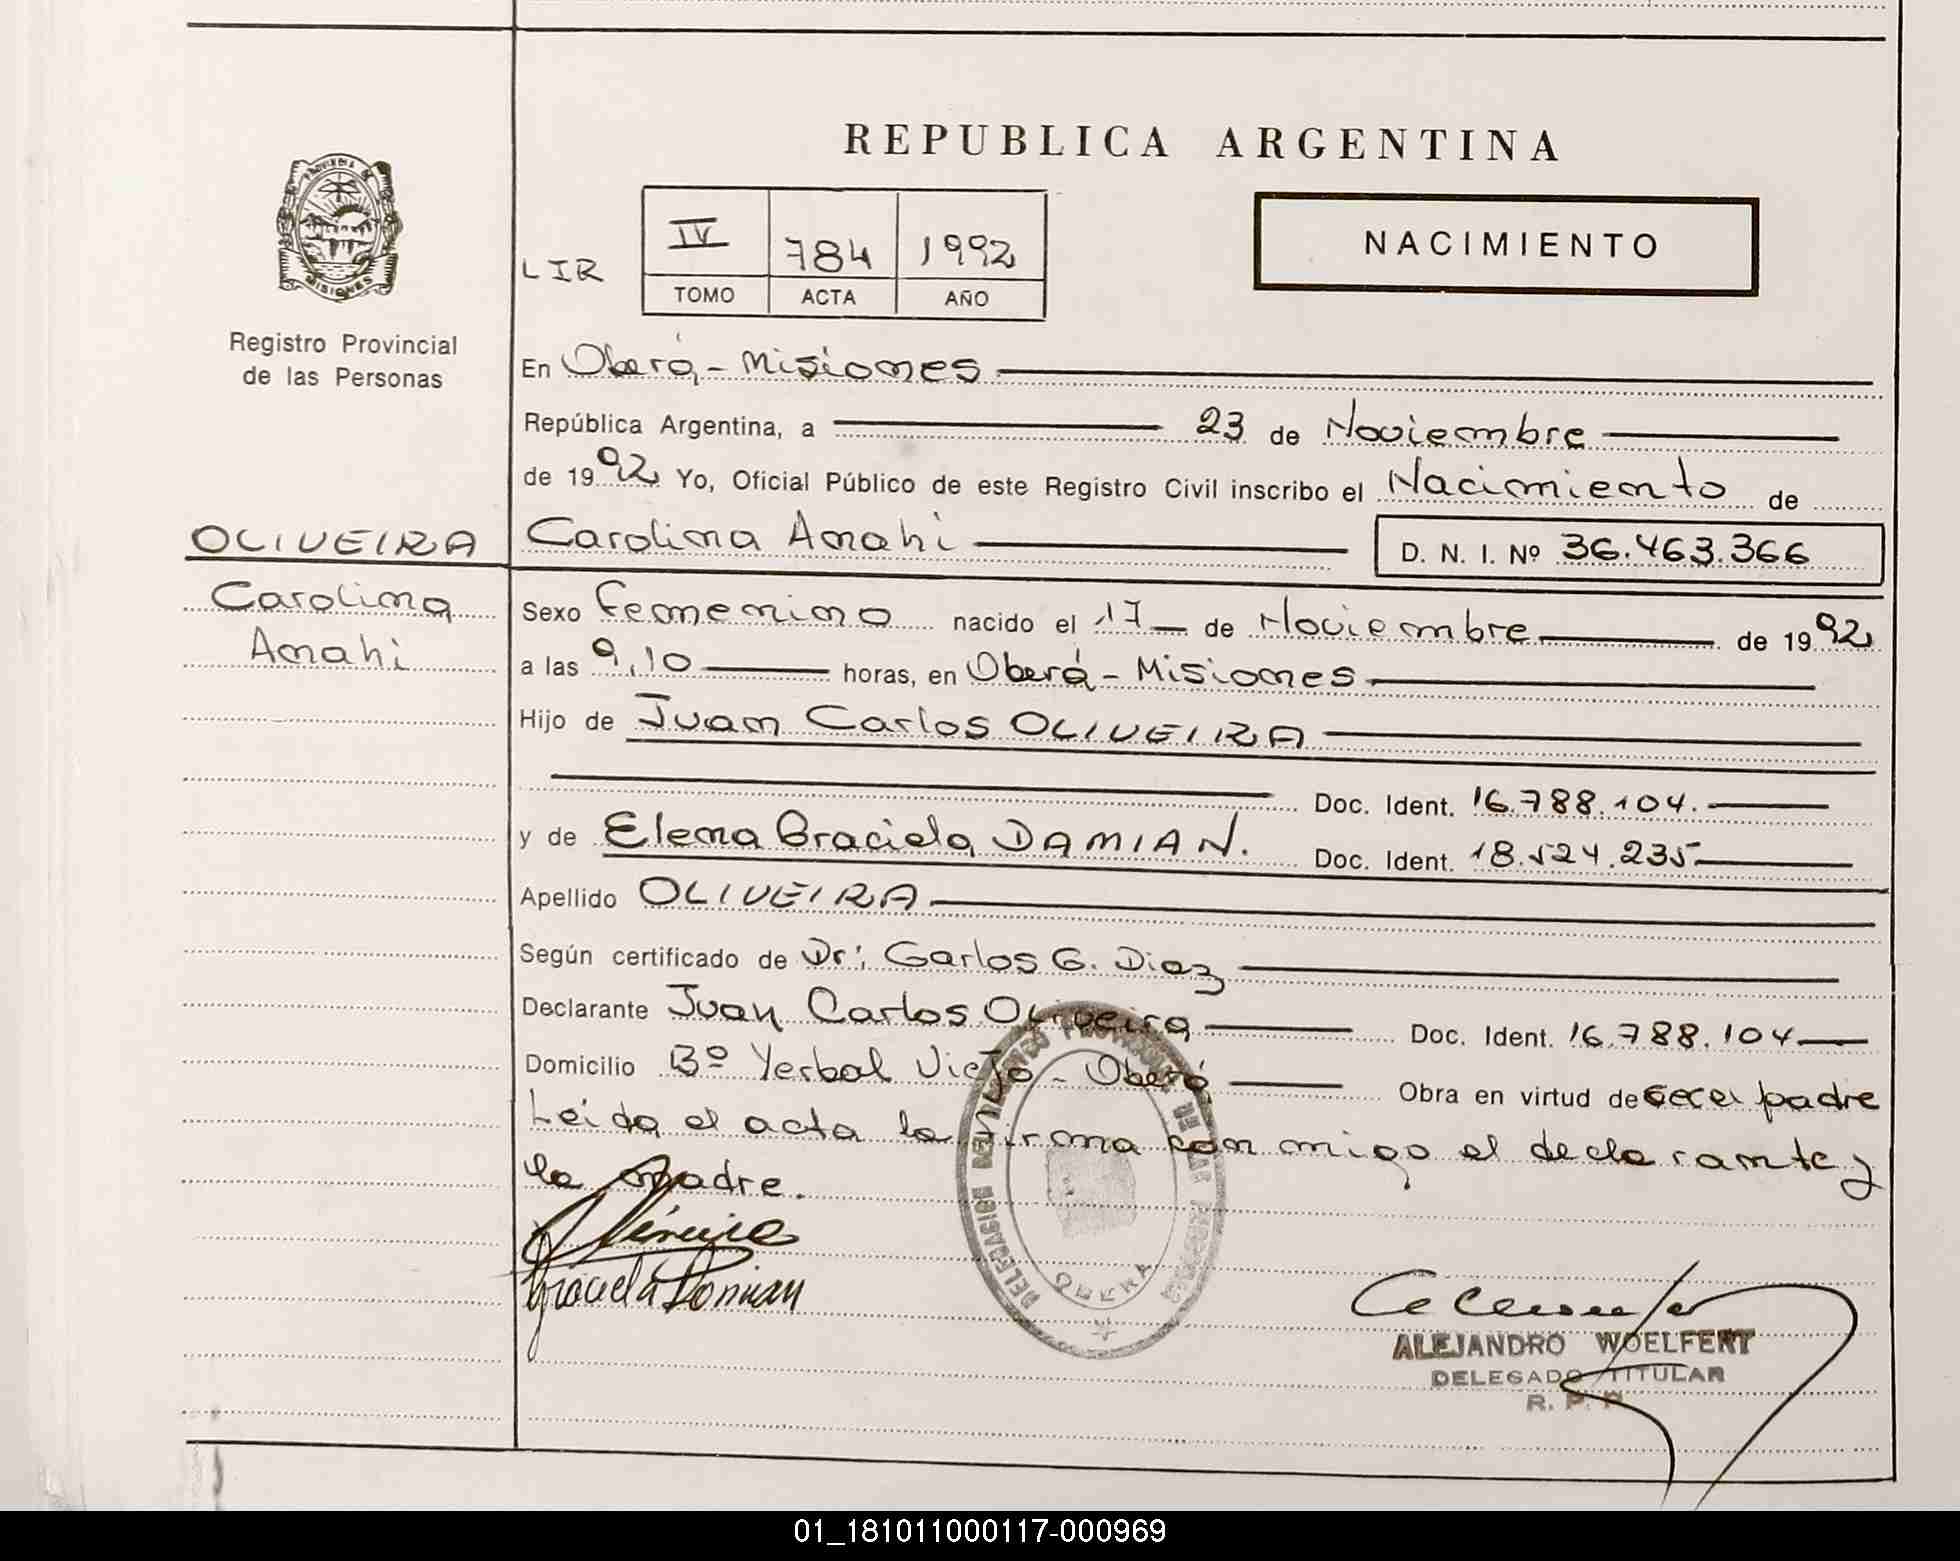 REPUBLICA ARGENTINA
PROVINCIA DE
MISIONES
Registro Provincial
de las Personas
LIR
IV 784 1992
TOMO ACTA AÑO
NACIMIENTO
En Oberá - Misiones
República Argentina, a 23 de Noviembre
de 1992 Yo, Oficial Público de este Registro Civil inscribo el Nacimiento de
OLIVEIRA
Carolina
Anahi
Carolina Anahi
D. N. I. Nº 36.463.366
Sexo Femenino nacido el 17 de Noviembre de 1992
a las 9,10 horas, en Oberá - Misiones
Hijo de Juan Carlos OLIVEIRA
Doc. Ident. 16.788.104.
y de Elena Graciela DAMIAN. Doc. Ident. 18.524.235
Apellido OLIVEIRA
Según certificado de Dr: Carlos G. Diaz
Declarante Juan Carlos Oliveira Doc. Ident. 16.788.104
Domicilio Bº Yerbal Viejo - Oberá Obra en virtud de padre
Leida el acta la firma con migo el declarante y
la madre.
Oliveira
Graciela Damian
DELEGACION DEL REGISTRO PROVINCIAL DE LAS PERSONAS
OBERA
ALEJANDRO WOELFERT
DELEGADO TITULAR
R. P. P.
01_181011000117-000969